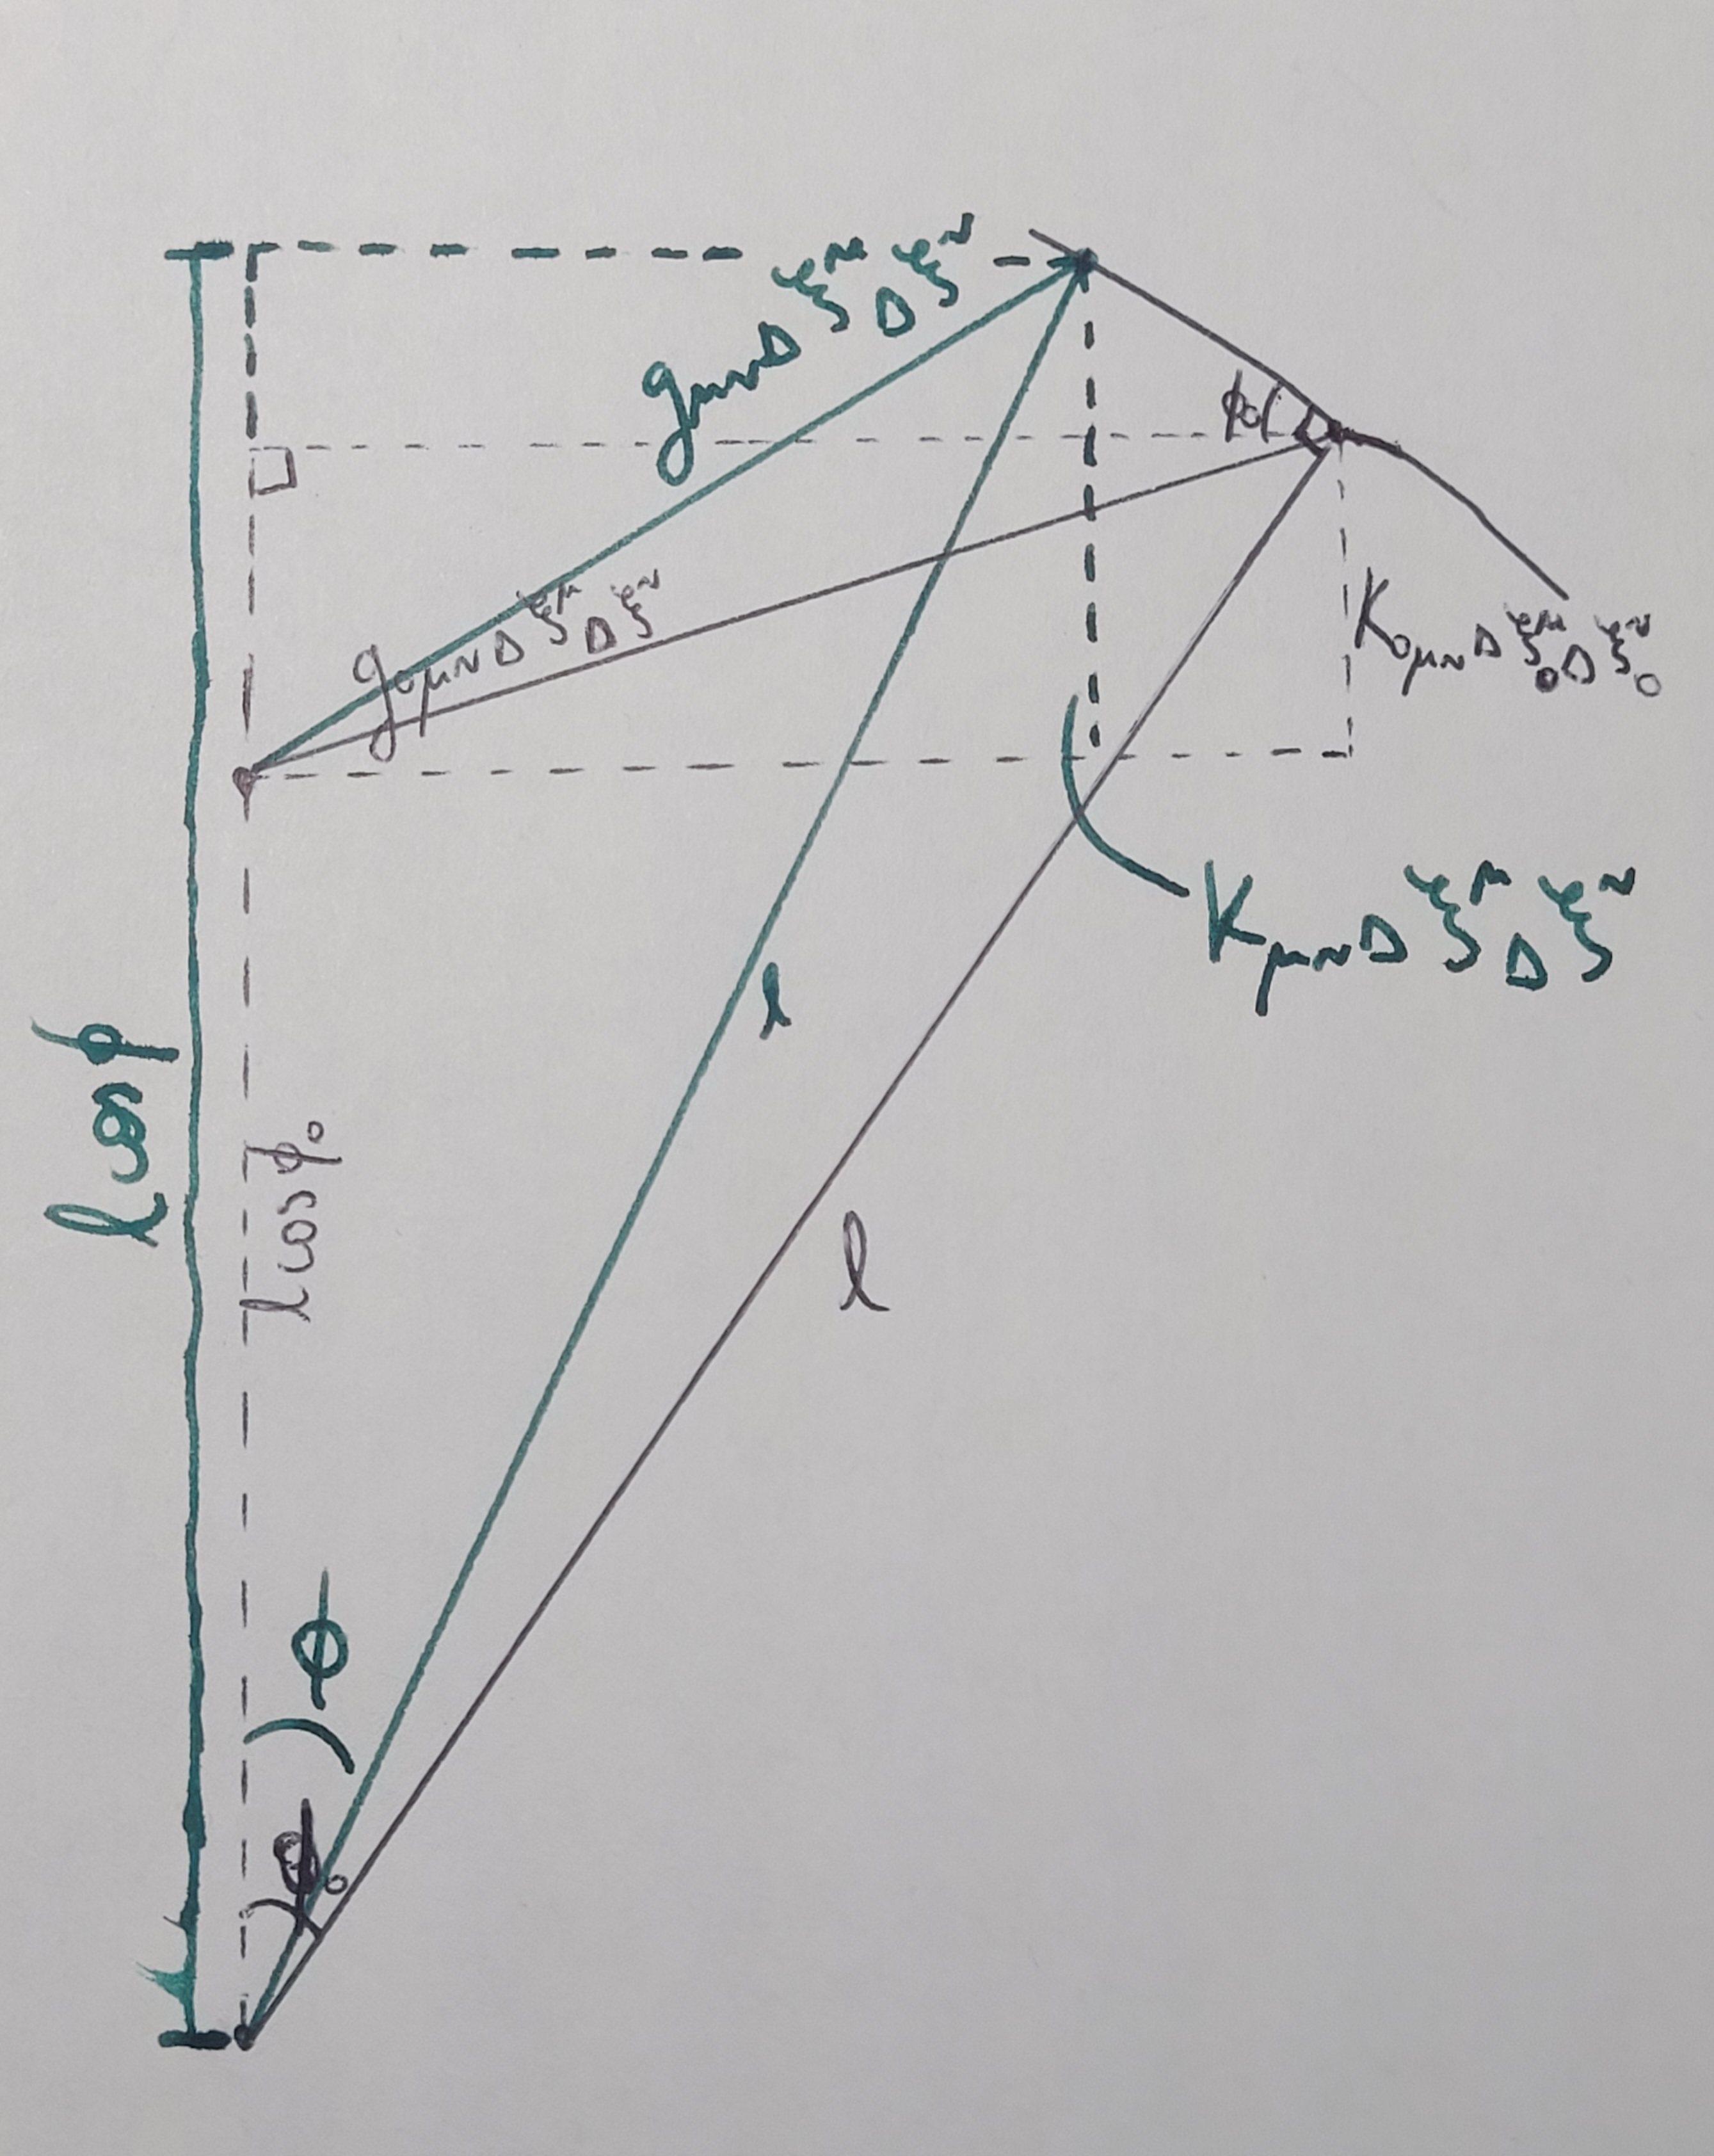 g_{μν}Δξ^μΔξ^ν
φ₀
g_{0μν}Δξ^μΔξ^ν
K_{0μν}Δξ₀^μΔξ₀^ν
K_{μν}Δξ^μΔξ^ν
l
l cosφ
l cosφ₀
l
φ
φ₀